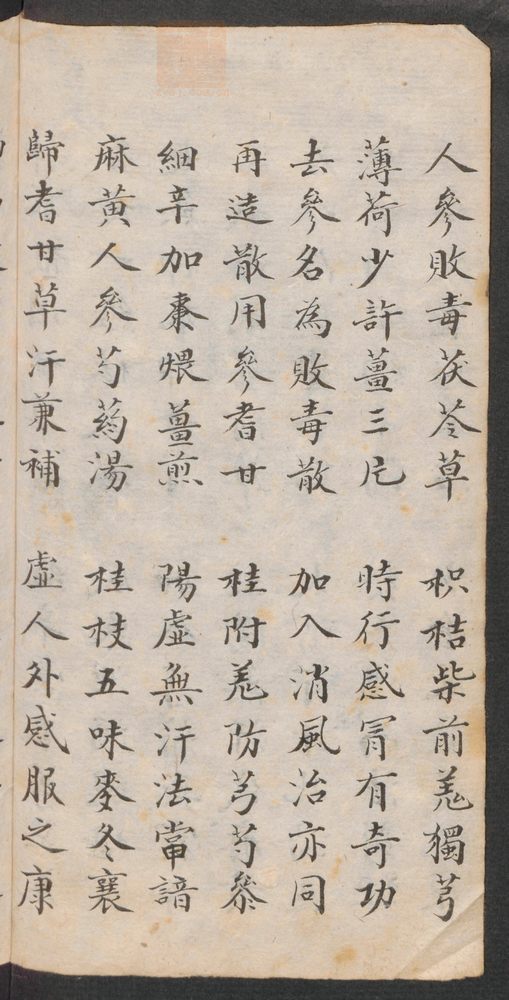 人參敗毒茯苓草　枳桔柴前羗獨芎
薄荷少許薑三片　時行感冒有奇功
去參名為敗毒散　加入消風治亦同
再造散用參耆甘　桂附羗防芎芍參
細辛加棗煨薑煎　陽虛無汗法當諳
麻黃人參芍葯湯　桂枝五味麥冬襄
歸耆甘草汗兼補　虛人外感服之康